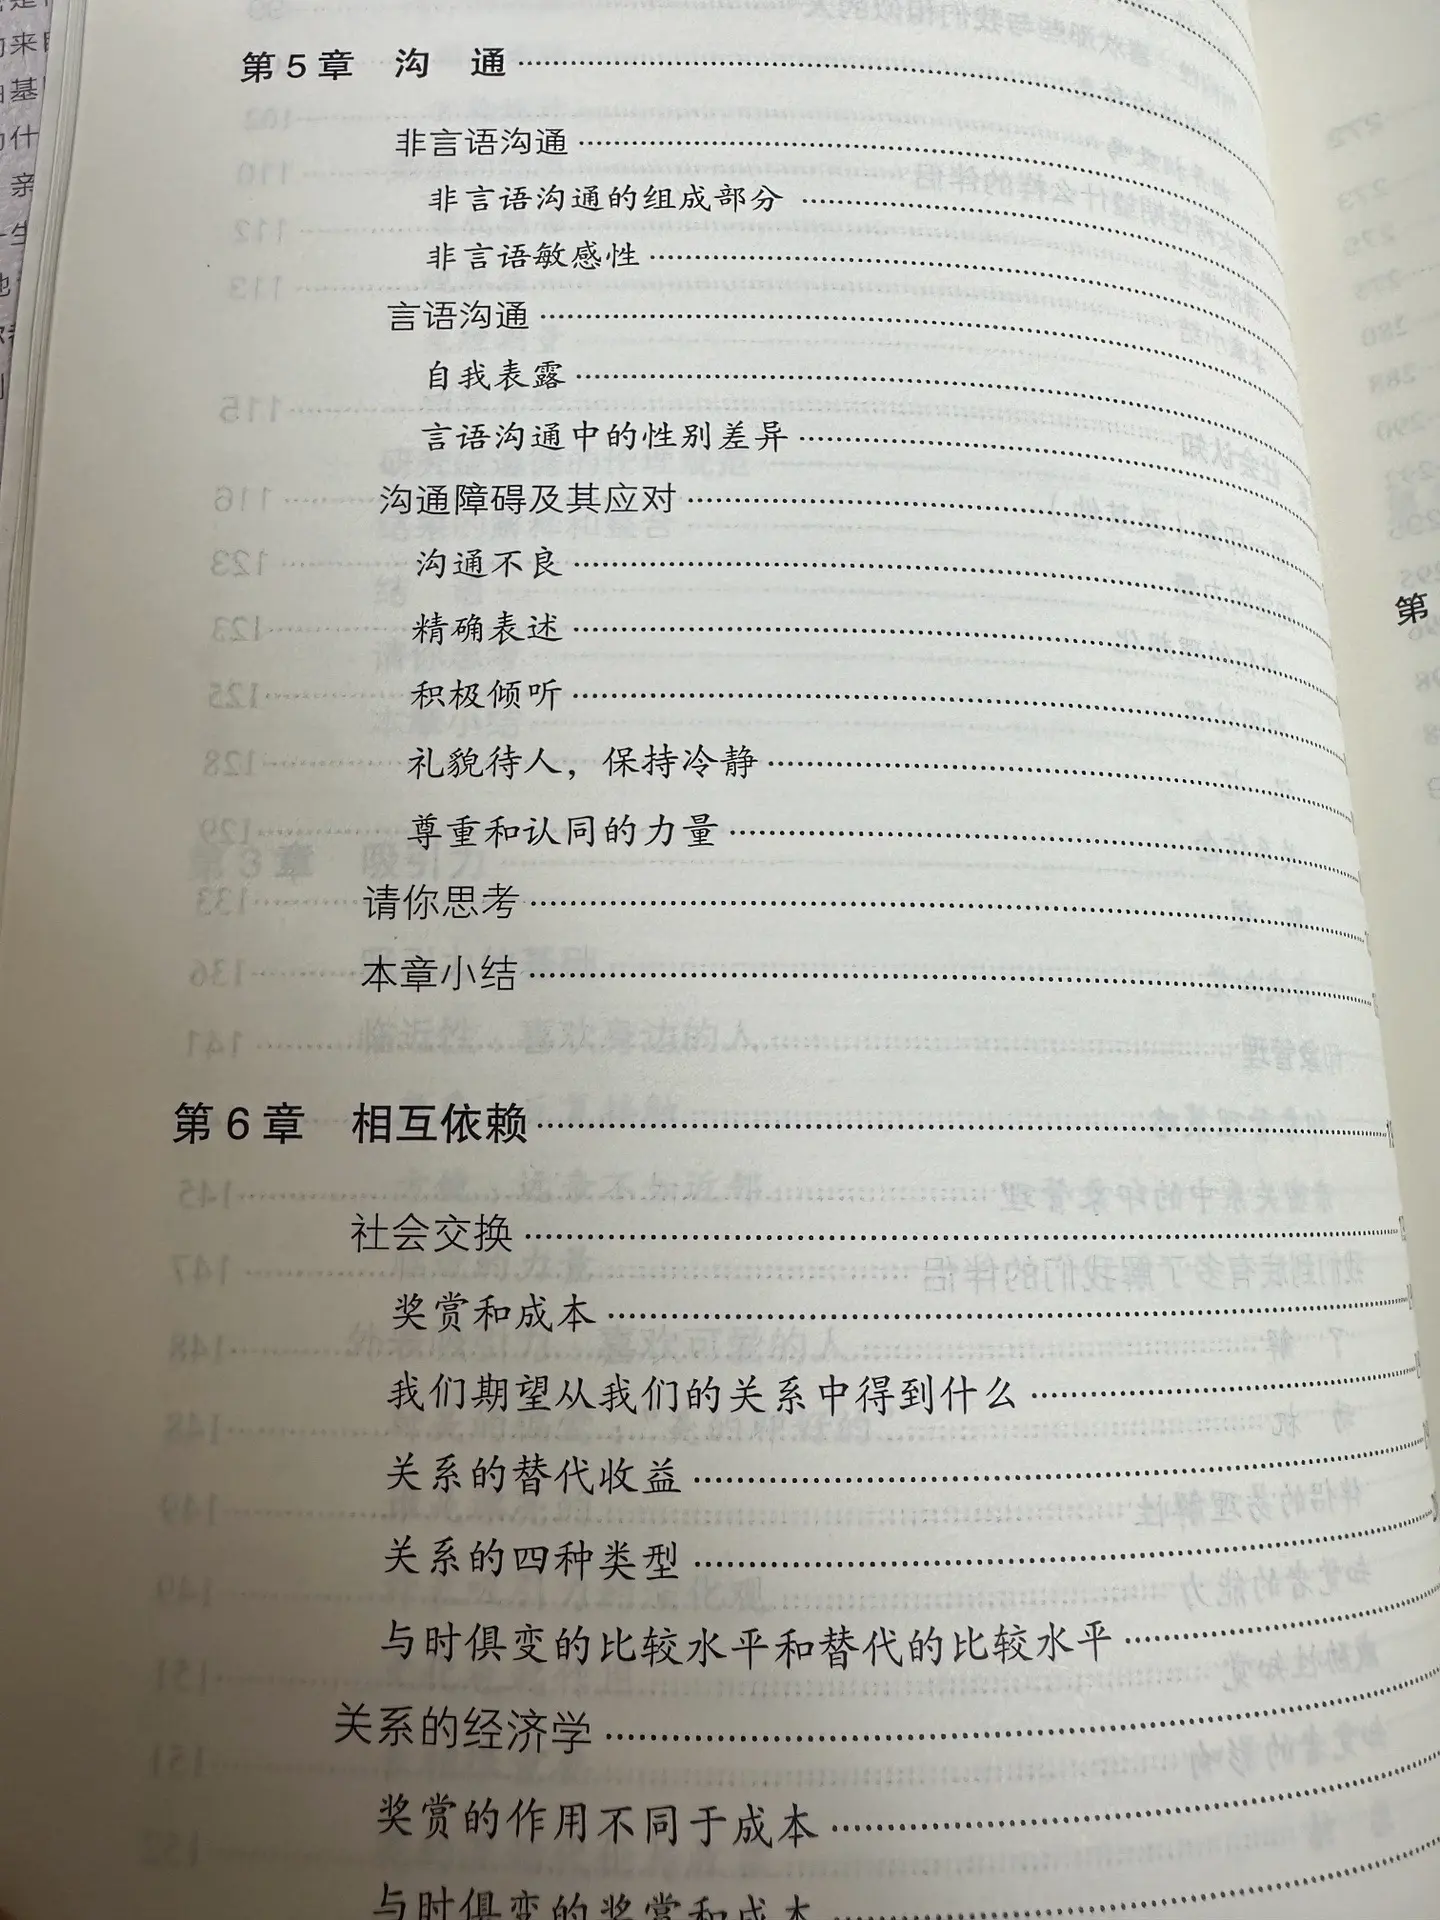 第5章 沟 通
非言语沟通
非言语沟通的组成部分
非言语敏感性
言语沟通
自我表露
言语沟通中的性别差异
沟通障碍及其应对
沟通不良
精确表述
积极倾听
礼貌待人，保持冷静
尊重和认同的力量
请你思考
本章小结
第6章 相互依赖
社会交换
奖赏和成本
我们期望从我们的关系中得到什么
关系的替代收益
关系的四种类型
与时俱变的比较水平和替代的比较水平
关系的经济学
奖赏的作用不同于成本
与时俱变的奖赏和成本
第